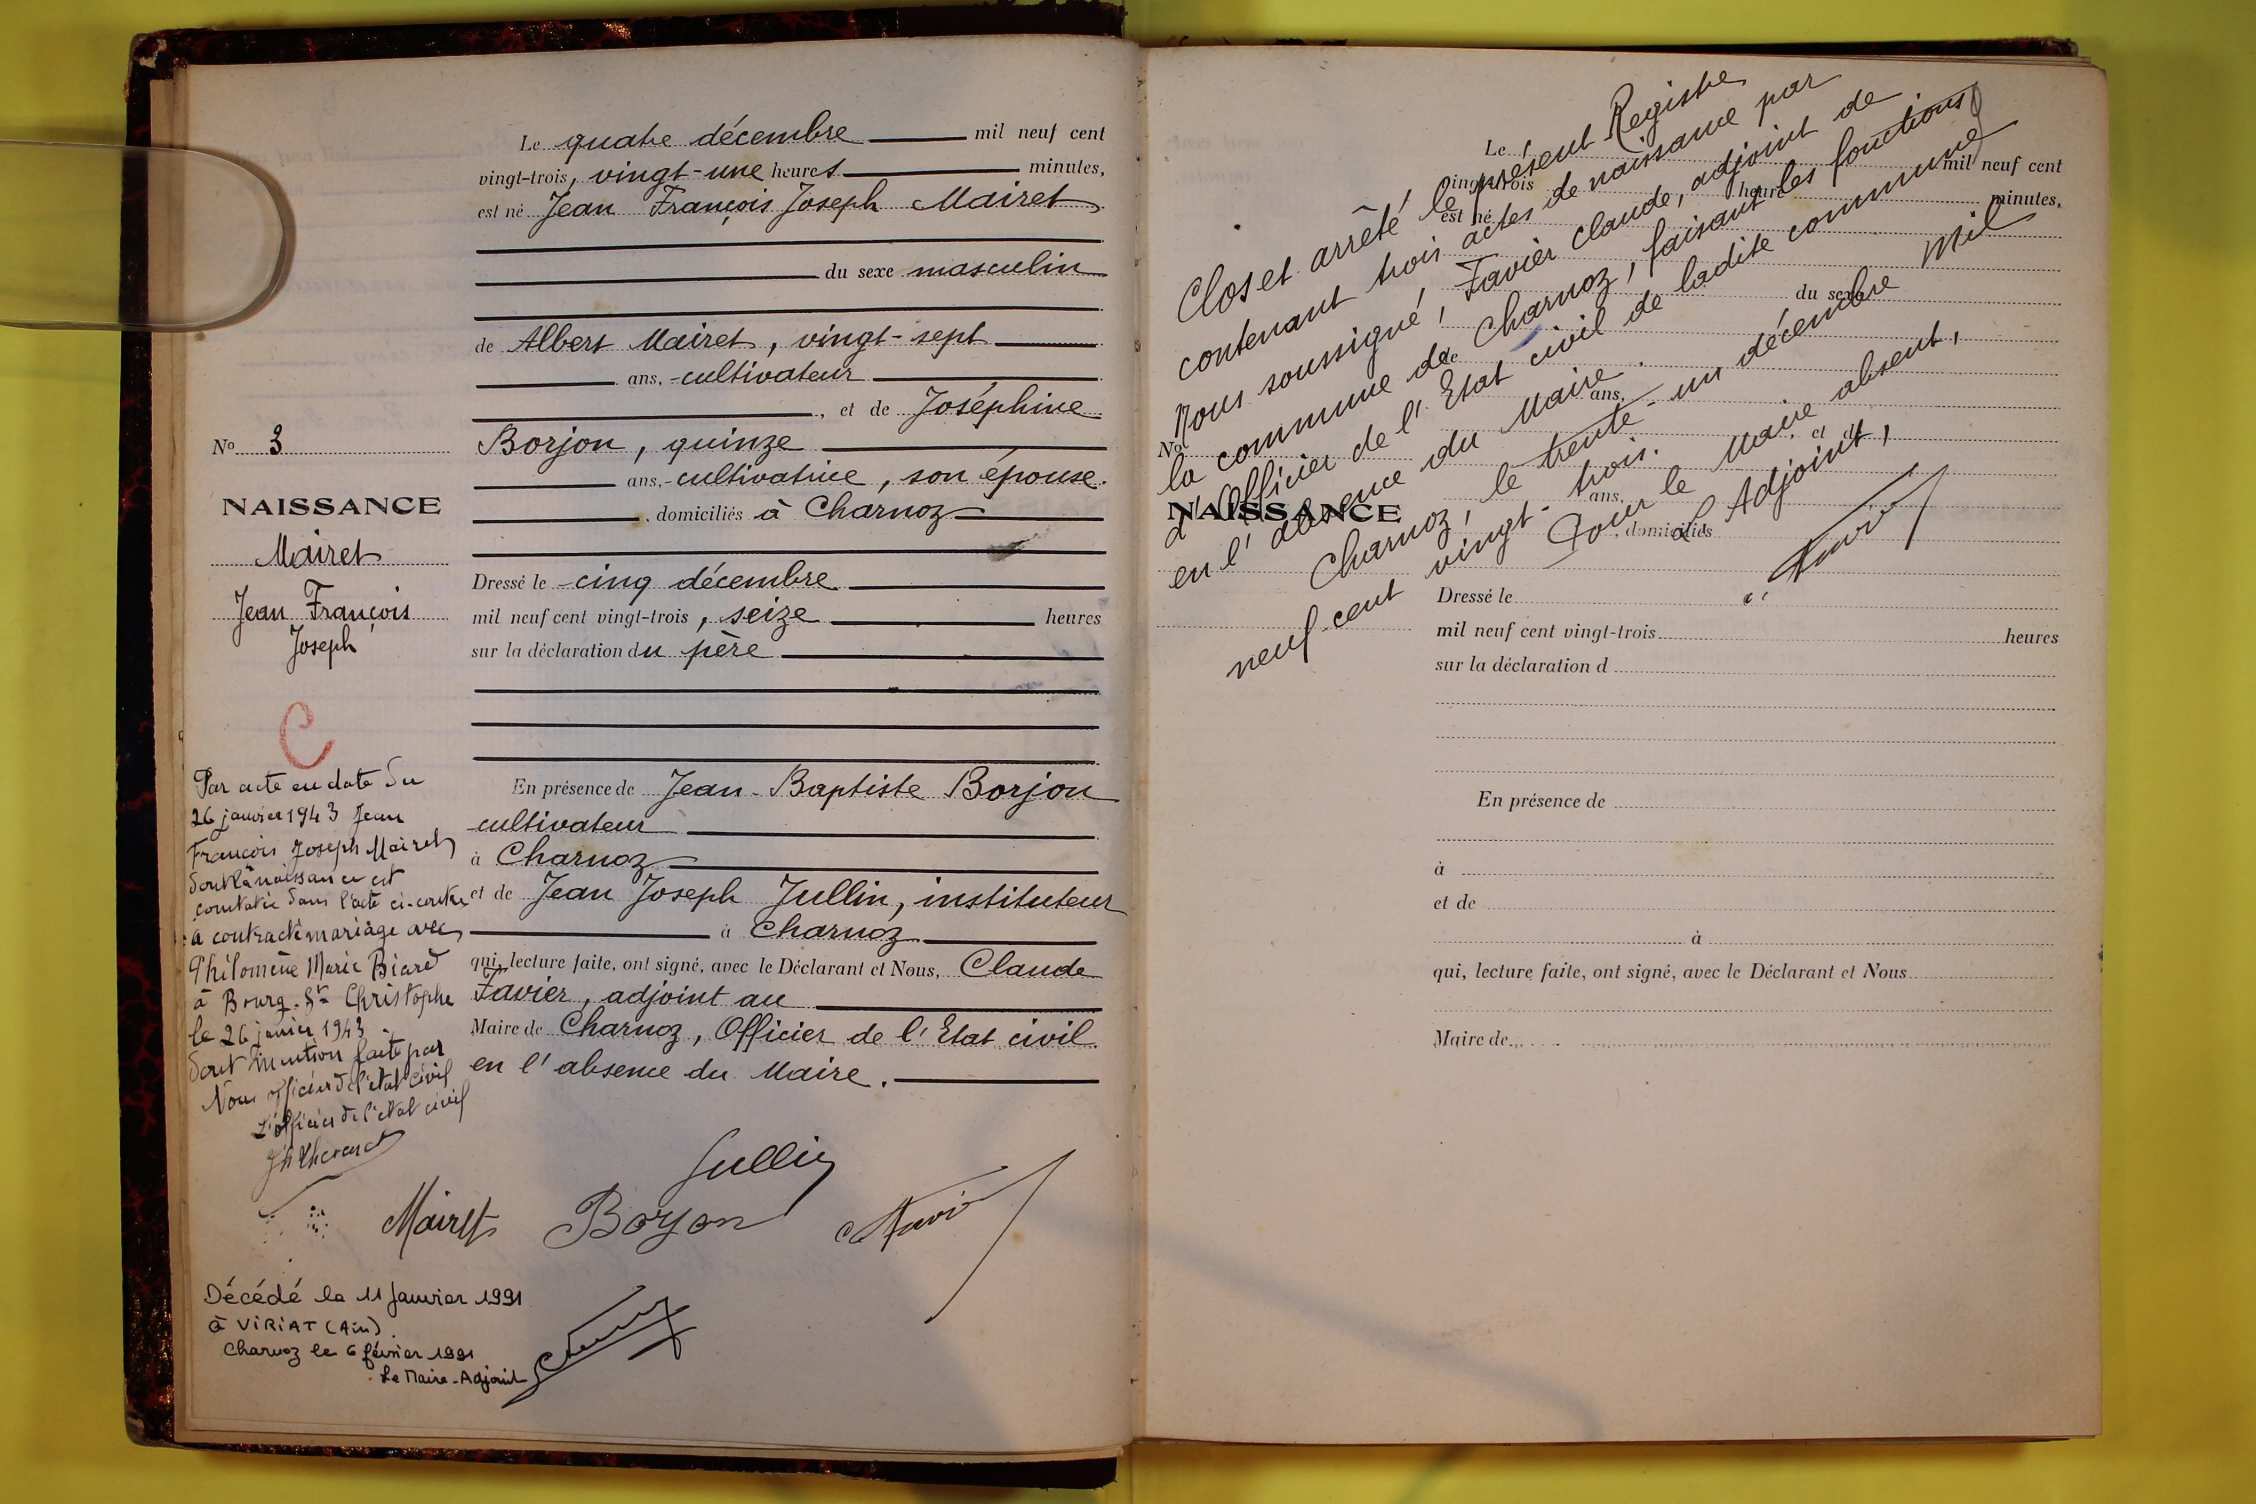 Le quatre décembre mil neuf cent
vingt-trois, vingt-une heures minutes,
est né Jean François Joseph Mairet
du sexe masculin
de Albert Mairet, vingt-sept
ans, cultivateur
, et de Joséphine
Borjon, quinze
ans, cultivatrice, son épouse.
, domiciliés à Charnoz
Dressé le cinq décembre
mil neuf cent vingt-trois, seize heures
sur la déclaration du père
En présence de Jean-Baptiste Borjon
cultivateur
à Charnoz
et de Jean Joseph Jullin, instituteur
à Charnoz
qui, lecture faite, ont signé, avec le Déclarant et Nous, Claude
Favier, adjoint au
Maire de Charnoz, Officier de l'Etat civil
en l'absence du Maire.
Jullin
Mairet Borjon Favier
No 3
NAISSANCE
Mairet
Jean François
Joseph
C
Par acte en date du
26 janvier 1943 Jean
François Joseph Mairet
dont la naissance est
constatée dans l'acte ci-contre
a contracté mariage avec
Philomène Marie Biard
à Bourg-St Christophe
le 26 janvier 1943.
dont mention faite par
Nous officier de l'état civil
L'officier de l'état civil
Décédé le 11 Janvier 1991
à VIRIAT (Ain).
Charnoz le 6 février 1991
Le Maire-Adjoint
Clos et arrêté le présent Registre
contenant trois actes de naissance par
Nous soussigné, Favier Claude, adjoint de
la commune de Charnoz, faisant les fonctions
d'Officier de l'Etat civil de ladite commune
en l'absence du Maire.
Charnoz, le trente-un décembre Mil
neuf cent vingt-trois.
Pour le Maire absent,
L'Adjoint,
Favier
Le mil neuf cent
vingt-trois heure minutes,
est né
du sexe
de
ans,
, et de
ans,
, domiciliés
No
NAISSANCE
Dressé le
mil neuf cent vingt-trois heures
sur la déclaration d
En présence de
à
et de
à
qui, lecture faite, ont signé, avec le Déclarant et Nous
Maire de